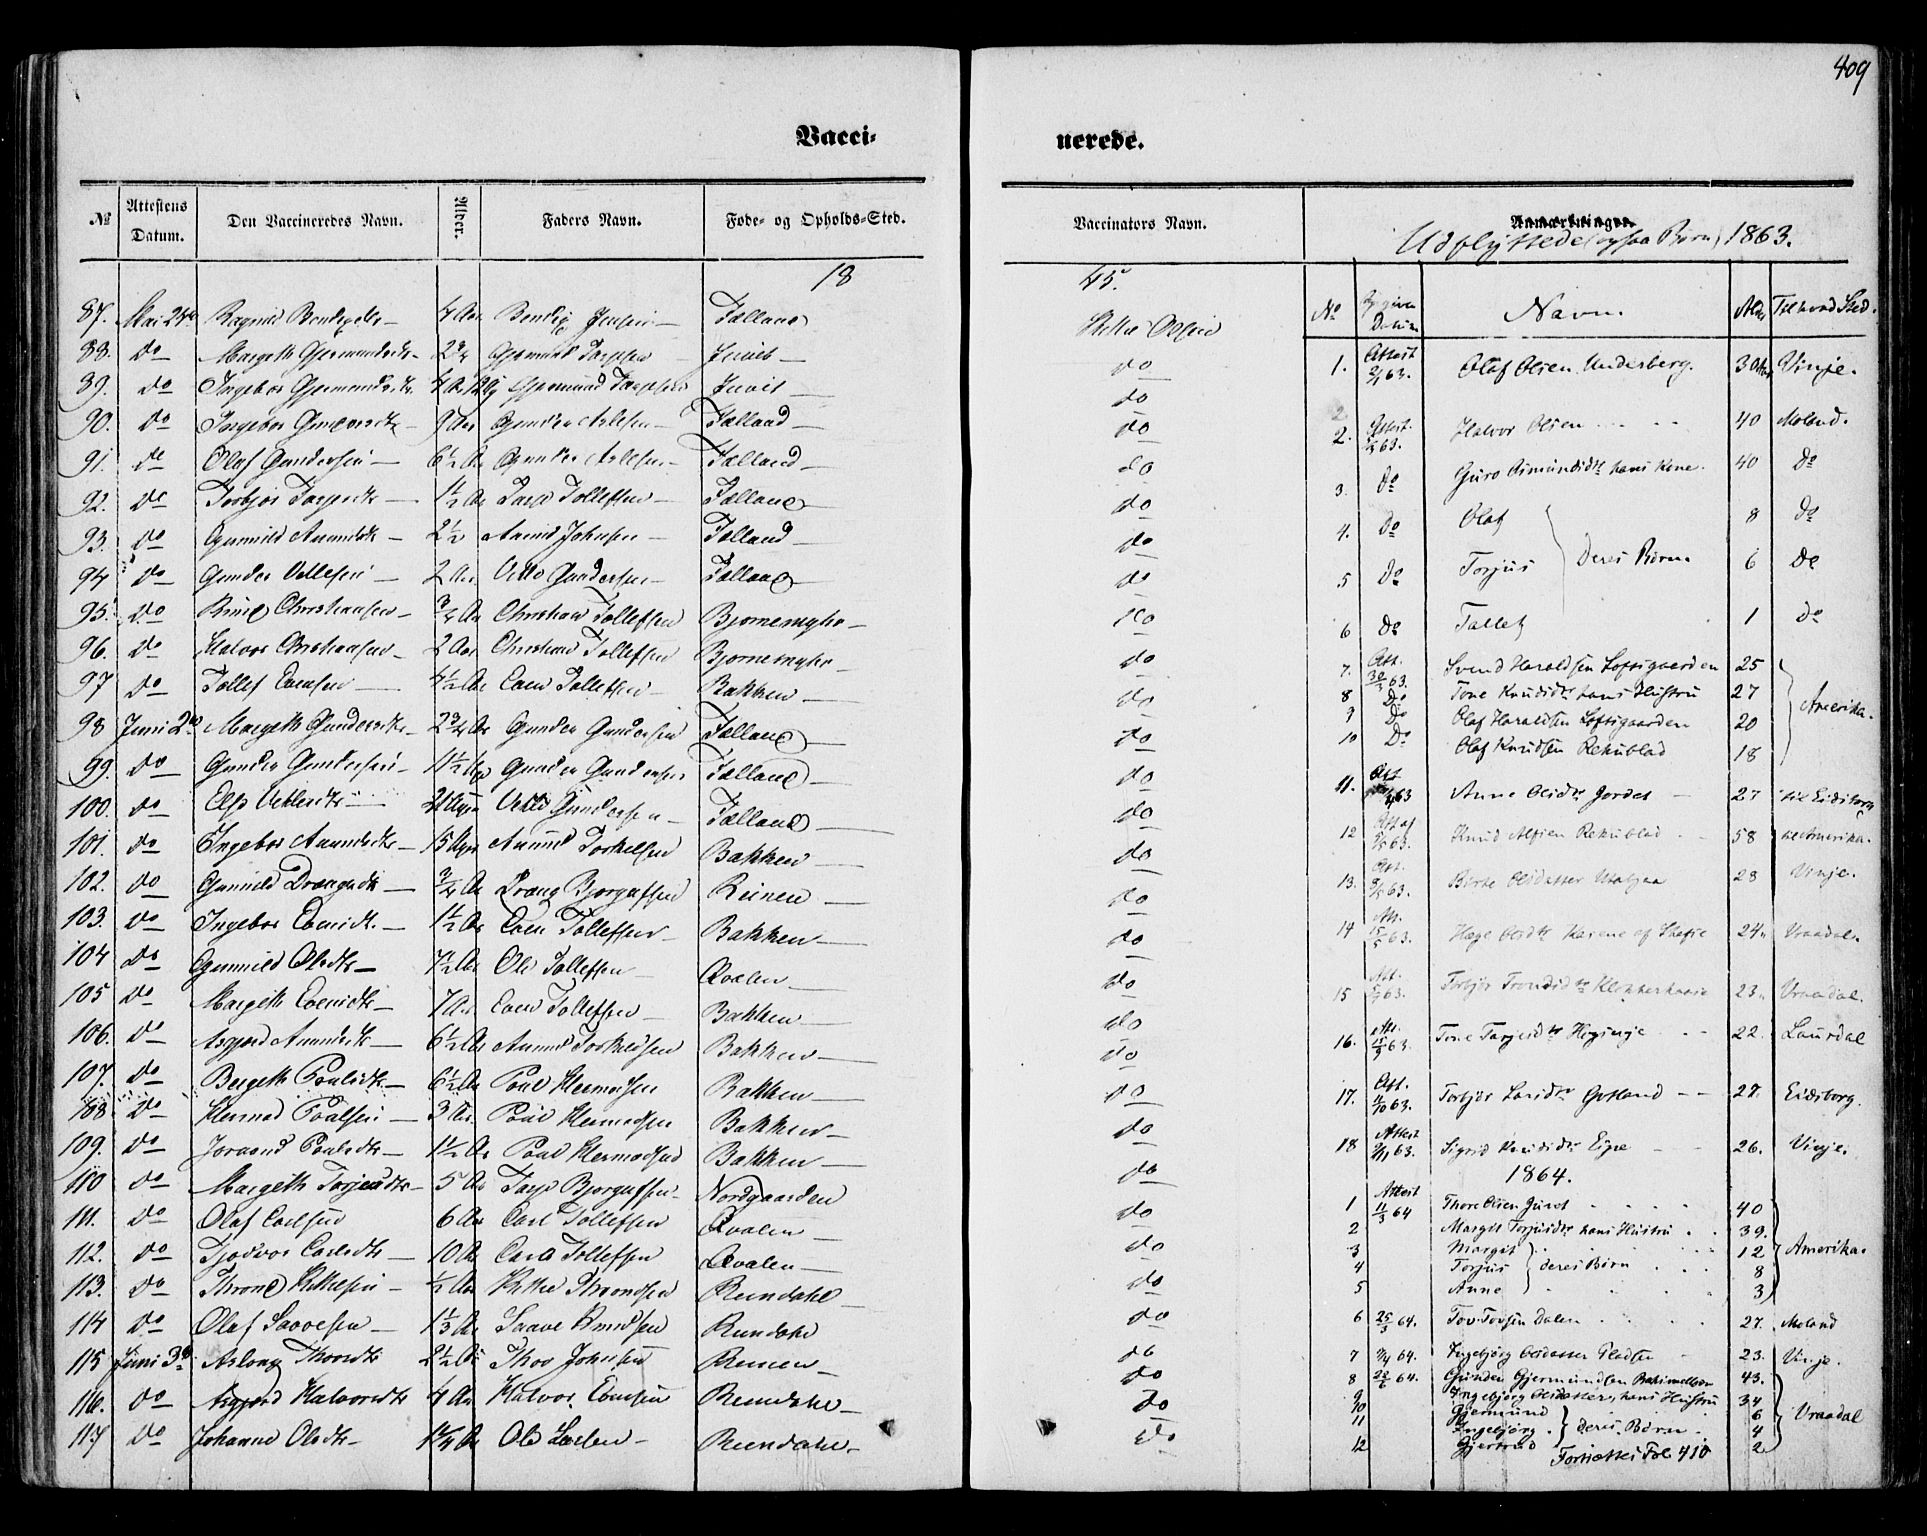 409
Vacci-
nerede.
No Attestens Datum. Den Vaccineredes Navn. Alder. Faders Navn. Føde- og Opholds-Sted.
1845.
87. Mai 24de Ragnild Bendixdtr — 4 Aar Bendix Jensen — Fælland
88. do Margeth Gjermundsdtr 2 3/4 Gjermund Tarjesen Juvet —
89. do Ingebor Gjermundsdtr Gjermund Tarjesen Juvet —
90. do Ingebor Gundersdtr 9 Aar Gunder Aslesen — Fælland —
91. do Olaf Gundersen — 6 1/2 Aar Gunder Aslesen — Fælland —
92. do Torbjør Tarjesdtr — 1 1/2 Aar Tarje Tollefsen — Fælland
93. do Gunnild Aanundsdtr — 2 1/2 Aanund Johnsen — Fælland —
94 do Gunder Vetlesen — 2 Aar Vetle Gundersen — Fælland
95. do Knud Christiansen 3/4 Aar Christian Tollefsen Bjørnemyhr —
96. do Halvor Christiansen — 2 Aar Christian Tollefsen Bjørnemyhr —
97 do Tollef Evensen — 4 1/2 Aar Even Tollefsen — Bakken —
98 Juni 2de Margeth Gundersdtr — 2 3/4 Aar Gunder Gundersen Fælland —
99. do Gunder Gundersen — 11 1/2 Gunder Gundersen Fælland —
100. do Vetle Gundersen — Fælland —
101. do Ingebor Aanundsdtr — 15 Uger Aanund Torkelsen Bakken —
102. do Gunnild Drængsdtr — 3/4 Aar Dræng Bjørgufsen Reinen —
103. do Ingebor Evensdtr. — 1 1/2 Aar Even Tollefsen Bakken —
104 do Gunnild Olsdtr — 7 1/2 Aar Ole Tollefsen — Qvalen —
105 do Margeth Evensdtr — 7 Aar Even Tollefsen — Bakken —
106. do Asgjerd Aanundsdtr — 6 1/2 Aar Aanund Torkelsen Bakken —
107. do Bergeth Poulsdtr — 6 1/2 Aar Poul Hermodsen Bakken —
108 do Hermod Poulsen — 3 Aar Poul Hermodsen Bakken —
109. do Joraand Poulsdtr — 1 1/2 Aar Poul Hermodsen Bakken —
110 do Margeth Tarjesdtr — 5 Aar Tarje Bjørgufsen — Nordgaarden
111. do Olaf Carlsen 6 Aar Carl Tollefsen Qvalen —
112. do Tjodvor Carlsdtr — 10 Aar Carl Tollefsen Qvalen —
113. do Thrond Kittelsen — 1/2 Aar Kittel Throndsen Reindahl —
114 do Olaf Saavesen — 1 1/3 Aar Saave Knudsen Reindahl
115 Juni 3de Aslaug Thorsdtr 2 1/2 Aar Thor Johnsen Reinen —
116. do Asgjerd Halvorsdtr 4 Aar Halvor Evensen Reindahl —
117 do Johanne Olsdtr — Ole Larsen — Reindahl —
Vaccinators Navn.
Kittel Olsen
do
do
do
do
do
do
do
do
do
do
do
do
do
do
do
do
do
do
do
do
do
do
do
do
do
do
do
do
do
do
Anmærkninger.
Udflyttede (ogsaa Børn) 1863.
No Opgiven Datum Navn. Alder Til hvad Sted.
1. Attest 2/1 63. Olaf Olsen Underberg. 30 Aar Vinje.
2. Attest 63. Halvor Olsen . . . . 40 Moland.
3. Do Guro Asmundsdtr hans Kone. 40 Do
4. Do Olaf 8 Do
5 Do Torjus } Deres Børn 6 Do
6 Do Tollef 1 Do
7. Att. 30/3 63. Svend Haraldsen Loftsgaarden 25
8 Do Tone Knudsdtr hans Hustru 27
9 Do Olaf Haraldsen Loftsgaarden 20 } Amerika.
10 Do Olaf Knudsen Rekublad 18
11. Att 63 Anne Olsdtr Jordet — 27 til Eidsborg
12 Att af 5/5 63. Knud Alfsen Rekublad . . 58 til Amerika.
13. Att. 9/5 63. Birte Olsdatter Utaljaa 28 Vinje.
14 Att. 15/5 63. Hæge Olsdtr Karene af Skafse 24 Vraadal.
15 Att. 63. Torbjør Trondsdtr Klokkerhavia 23 Vraadal.
16. Att. 15/9 63. Tone Tarjesdtr Høginje . . . 22. Laurdal
17. Att. 11/10 63. Torbjør Larsdtr Gotland — — 27. Eidsborg.
18 Attest 9/11 63. Sigrid Knudsdtr Eipe — — 26. Vinje.
1864.
1 Attest 11/3 64 Thore Olsen Juvet . . . . 40
2 Margit Torjusdtr hans Hustru . . 39.
3 Margit 12 } Amerika.
4 Torjus } deres Børn . . . 8
5 Anne 3
6 25/3 64. Tov Tovsen Dalen . . . . 27. Moland
7 7/4 64. Ingebjørg Olsdatter Gladsen 23. Vinje.
8 22/6 64. Gunder Gjermundsen 43.
9 Ingebjørg Olsdatter, hans Hustru 34
10 Gjermund 6 } Vraadal
11 Ingebjørg . } deres Børn . 4
12 Gjertrud 2
Fortsættes Fol. 410